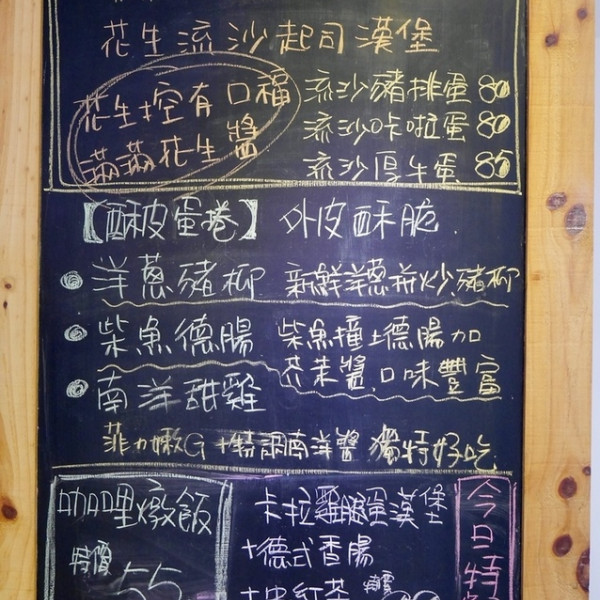 花生流沙起司漢堡
花生控有口福
滿滿花生醬
流沙豬排蛋 80
流沙咔啦蛋 80
流沙厚牛蛋 85
【酥皮蛋捲】 外皮酥脆.
洋蔥豬柳 新鮮洋蔥拼炒豬柳
柴魚德腸 柴魚撞上德腸加
芥茉醬.口味豐富
南洋甜雞
菲力嫩G+特調南洋醬 獨特好吃.
咖哩燉飯
特價
55
卡拉雞腿蛋漢堡
+德式香腸
+中紅茶 特價
今日特